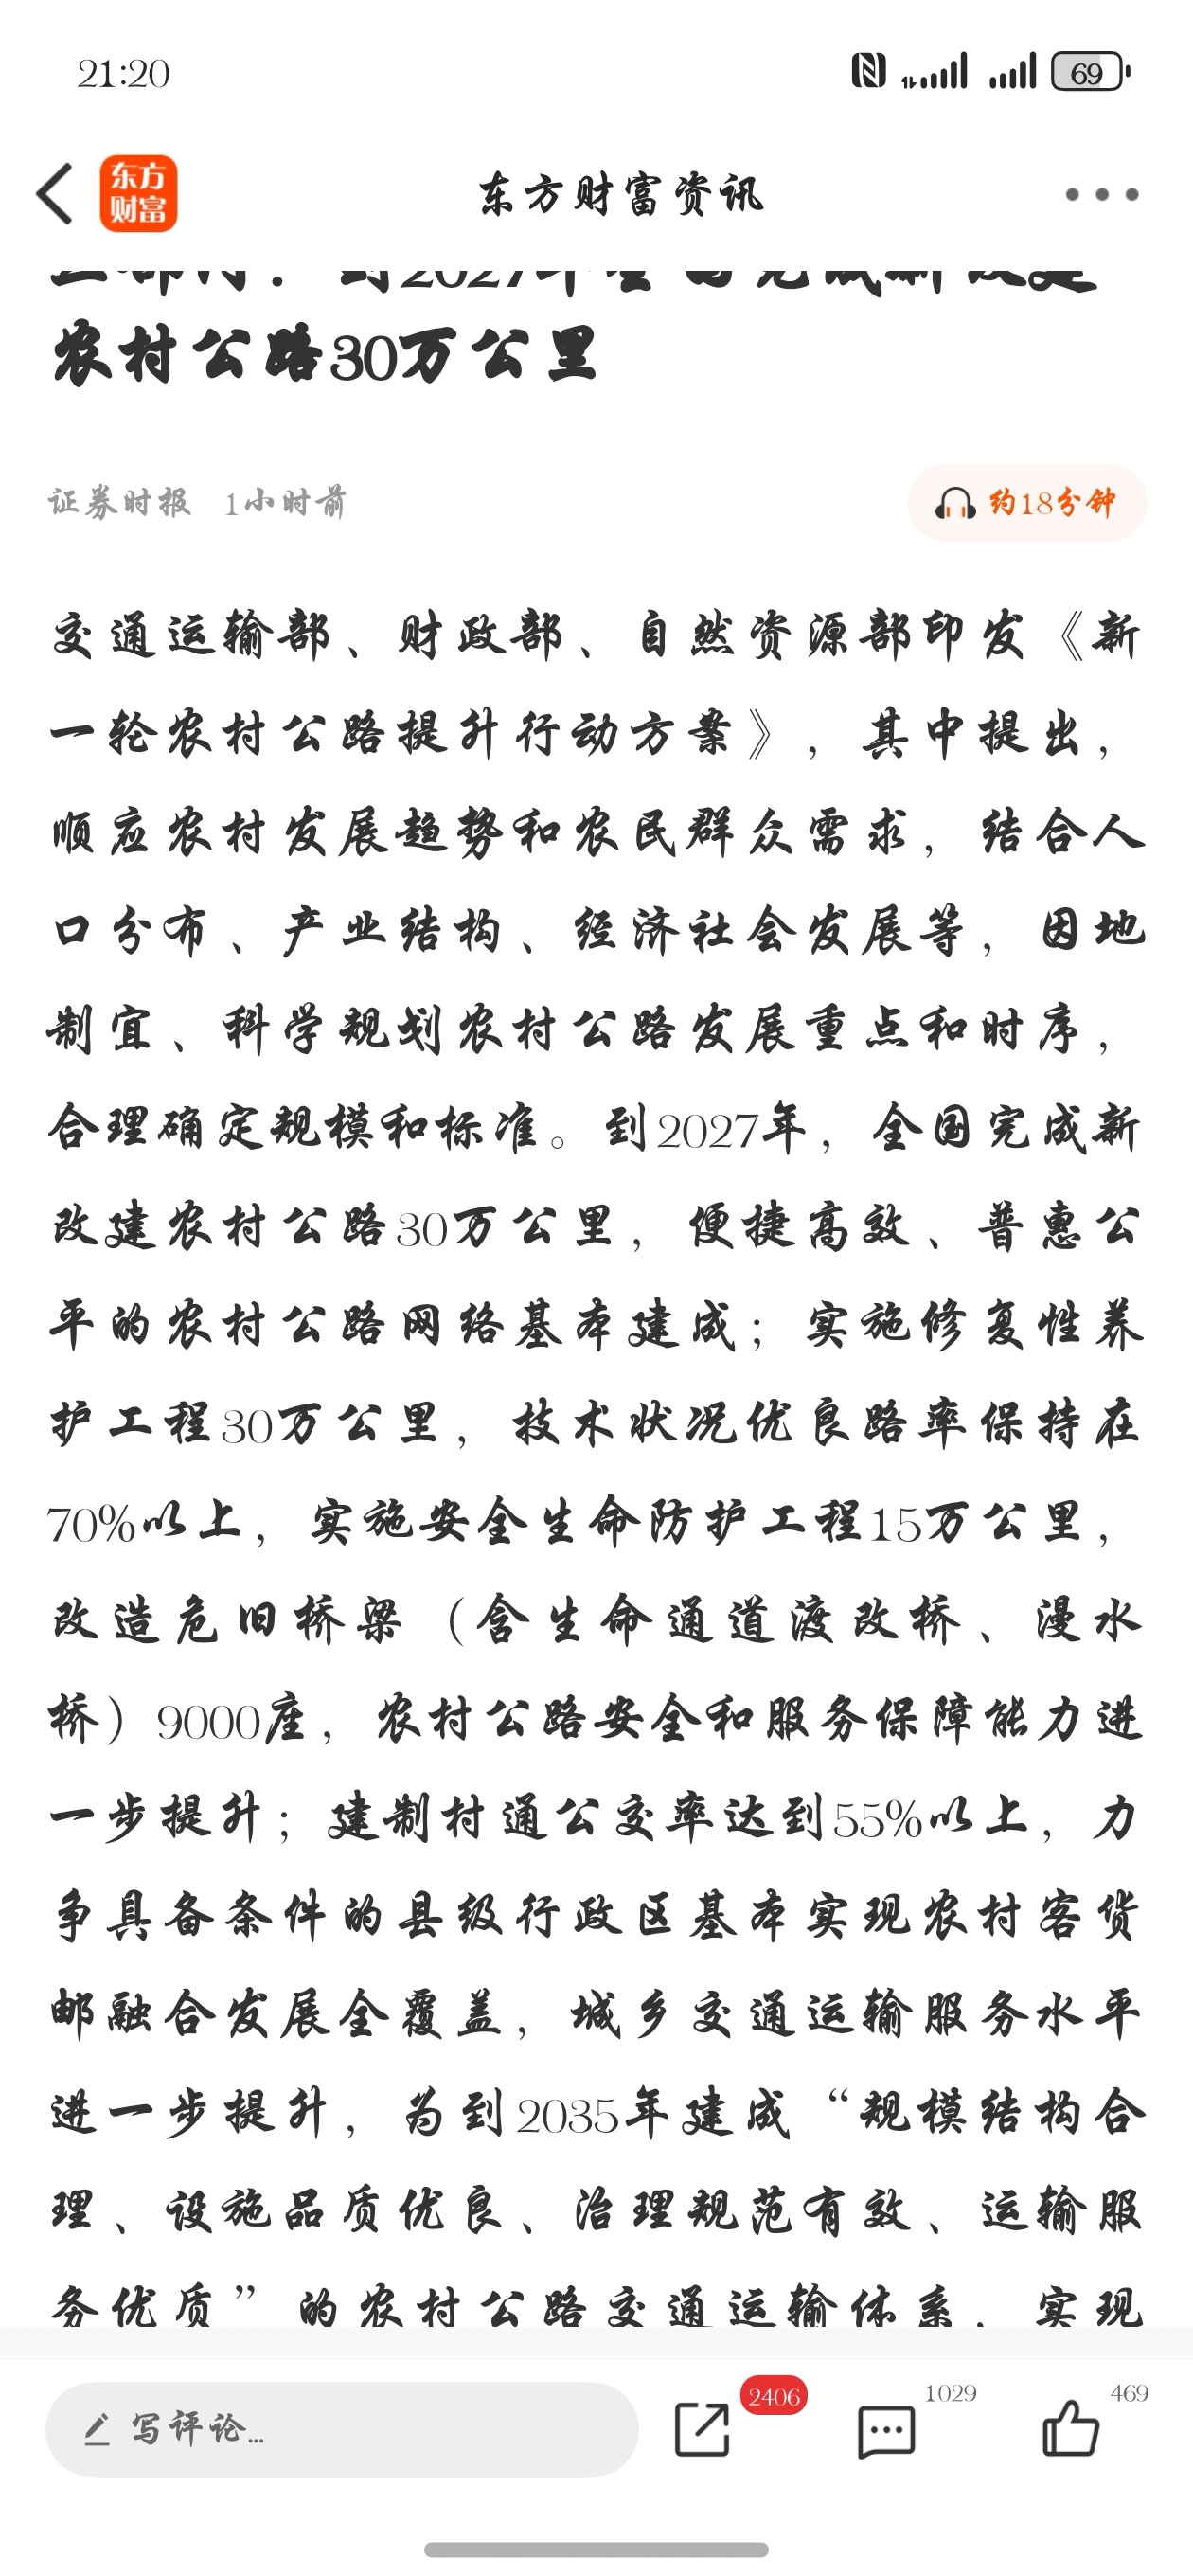 21:20
69
东方
财富
东方财富资讯
三部门：到2027年全国完成新改建
农村公路30万公里
证券时报 1小时前
约18分钟
交通运输部、财政部、自然资源部印发《新
一轮农村公路提升行动方案》，其中提出，
顺应农村发展趋势和农民群众需求，结合人
口分布、产业结构、经济社会发展等，因地
制宜、科学规划农村公路发展重点和时序，
合理确定规模和标准。到2027年，全国完成新
改建农村公路30万公里，便捷高效、普惠公
平的农村公路网络基本建成；实施修复性养
护工程30万公里，技术状况优良路率保持在
70%以上，实施安全生命防护工程15万公里，
改造危旧桥梁（含生命通道渡改桥、漫水
桥）9000座，农村公路安全和服务保障能力进
一步提升；建制村通公交率达到55%以上，力
争具备条件的县级行政区基本实现农村客货
邮融合发展全覆盖，城乡交通运输服务水平
进一步提升，为到2035年建成“规模结构合
理、设施品质优良、治理规范有效、运输服
务优质”的农村公路交通运输体系，实现
写评论...
2406
1029
469